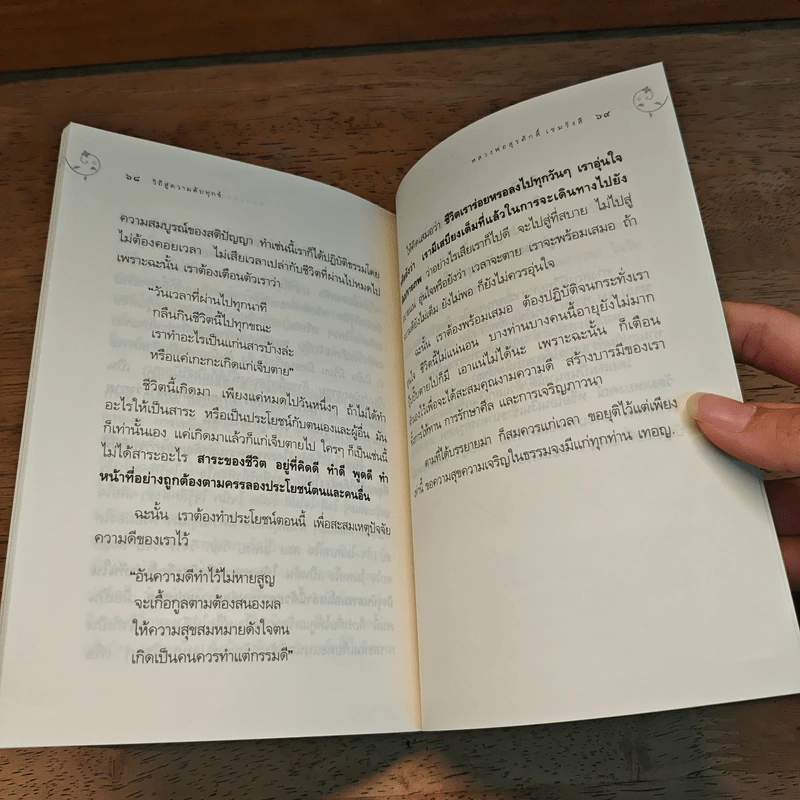 ๖๘ วิถีสู่ความดับทุกข์
ความสมบูรณ์ของสติปัญญา ทำเช่นนี้เราก็ได้ปฏิบัติธรรมโดย
ไม่ต้องคอยเวลา ไม่เสียเวลาเปล่ากับชีวิตที่ผ่านไปหมดไป
เพราะฉะนั้น เราต้องเตือนตัวเราว่า
“วันเวลาที่ผ่านไปทุกนาที
กลืนกินชีวิตนี้ไปทุกขณะ
เราทำอะไรเป็นแก่นสารบ้างล่ะ
หรือแค่เกะกะเกิดแก่เจ็บตาย”
ชีวิตนี้เกิดมา เพียงแค่หมดไปวันหนึ่งๆ ถ้าไม่ได้ทำ
อะไรให้เป็นสาระ หรือเป็นประโยชน์กับตนเองและผู้อื่น มัน
ก็เท่านั้นเอง แค่เกิดมาแล้วก็แก่เจ็บตายไป ใครๆ ก็เป็นเช่นนี้
ไม่ได้สาระอะไร สาระของชีวิต อยู่ที่คิดดี ทำดี พูดดี ทำ
หน้าที่อย่างถูกต้องตามครรลองประโยชน์ตนและคนอื่น
ฉะนั้น เราต้องทำประโยชน์ตอนนี้ เพื่อสะสมเหตุปัจจัย
ความดีของเราไว้
“อันความดีทำไว้ไม่หายสูญ
จะเกื้อกูลตามต้องสนองผล
ให้ความสุขสมหมายดังใจตน
เกิดเป็นคนควรทำแต่กรรมดี”
หลวงพ่อสุรศักดิ์ เขมรังสี ๖๙
ให้คิดเสมอว่า ชีวิตเราร่อยหรอลงไปทุกวันๆ เราอุ่นใจ
เรามีเสบียงเต็มที่แล้วในการจะเดินทางไปยัง
ว่าอย่างไรเสียเราก็ไปดี จะไปสู่ที่สบาย ไม่ไปสู่
อุ่นใจหรือยังว่า เวลาจะตาย เราจะพร้อมเสมอ ถ้า
ยังไม่เต็ม ยังไม่พอ ก็ยังไม่ควรอุ่นใจ
ฉะนั้น เราต้องพร้อมเสมอ ต้องปฏิบัติจนกระทั่งเรา
ชีวิตนี้ไม่แน่นอน บางท่านบางคนนี้อายุยังไม่มาก
ตายไปก็มี เอาแน่ไม่ได้นะ เพราะฉะนั้น ก็เตือน
ไว้เพื่อจะได้สะสมคุณงามความดี สร้างบารมีของเรา
การให้ทาน การรักษาศีล และการเจริญภาวนา
ตามที่ได้บรรยายมา ก็สมควรแก่เวลา ขอยุติไว้แต่เพียง
ขอความสุขความเจริญในธรรมจงมีแก่ทุกท่าน เทอญ.